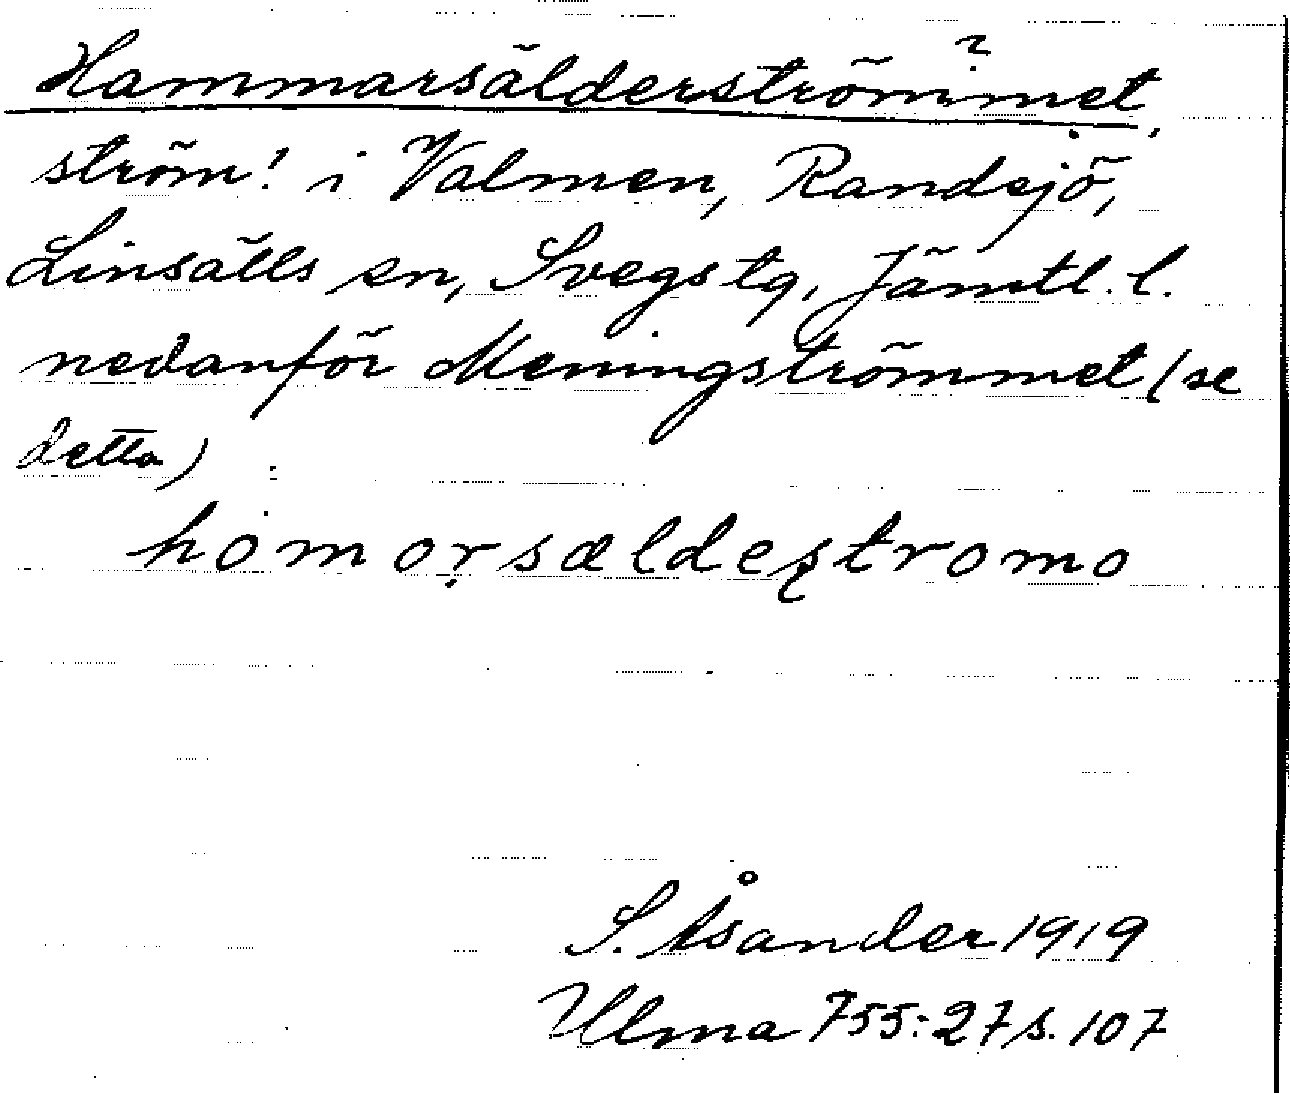 Hammarsälderströmmet?
ström! i Valmen, Randsjö,
Linsälls sn, Svegs tg, Jämtl. l.
nedanför Meningströmmet (se
detta)
homorsældeʂtromo
S. Åsander 1919
Ulma 755:27 s. 107